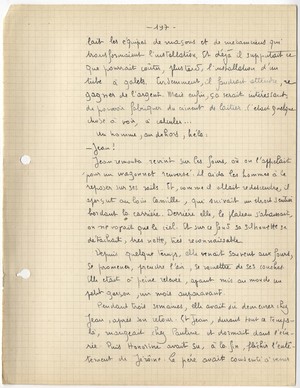 — 197 —
lait les équipes de maçons et de mécaniciens qui
transformaient l'installation. Et déjà il supputait ce
que pourrait coûter, plus tard, l'installation d'un
tube à galets. Évidemment, il faudrait attendre, re-
gagner de l'argent. Mais enfin, ça serait intéressant,
de pouvoir fabriquer du ciment de laitier. C'était quelque
chose à voir, à calculer...
Un homme, au dehors, héla :
— Jean !
Jean remonta, revint sur les fours, où on l'appelait
pour un wagonnet renversé. Il aida les hommes à le
reposer sur ses rails. Et, comme il allait redescendre, il
aperçut au loin Camille, qui suivait un étroit sentier
bordant la carrière. Derrière elle, le plateau s'abaissait,
on ne voyait que le ciel. Et sur ce fond sa silhouette se
détachait, très nette, bien reconnaissable.
Depuis quelque temps, elle venait souvent aux fours,
se promener, prendre l'air, se remettre de ses couches.
Elle était à peine relevée, ayant mis au monde un
petit garçon, un mois auparavant.
Pendant trois semaines, elle avait dû demeurer chez
Jean, après son retour. Et Jean, durant tout ce temps-
là, mangeait chez Pauline et dormait dans l'écu-
rie. Puis Honorine avait su, à la fin, fléchir l'entê-
tement de Jérôme. Le père avait consenti à venir